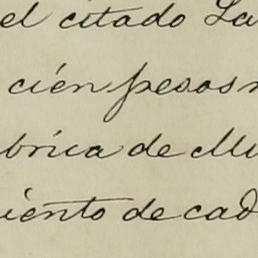 el citado La
cien pesos
brica de Mu
iento de cad